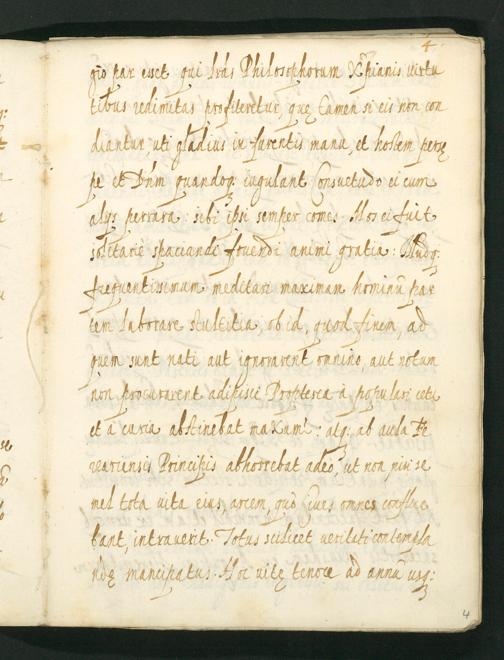 4.
gio par esset qui lrās Philosophorum Xp̄ianis virtu
tibus redimitas profiteretur, quę tamen si eis non con
diantur, uti gladius in furentis manu, et hostem persę
pe et Dn̄m quandoq; iugulant Consuetudo ei cum
alijs perrara: sibi ipsi semper comes. Mos ei fuit
solitarie spaciandi fovendi animi gratia:
frequentissimum meditari maximam hominū par
tem laborare stultitia, ob id, quod finem, ad
quem sunt nati aut ignorarent omnino, aut notum
non procurarent adipisci Propterea à populari cetu
et a curia abstinebat maxume: atq; ab aula
Principis abhorrebat adeo, ut non nisi se
mel tota vita eius, arcem, quò Cives omnes conflue
bant, intraverit. Totus scilicet veritati contempla
ndę mancipatus. Hoc vitę tenore ad annū usq;
4